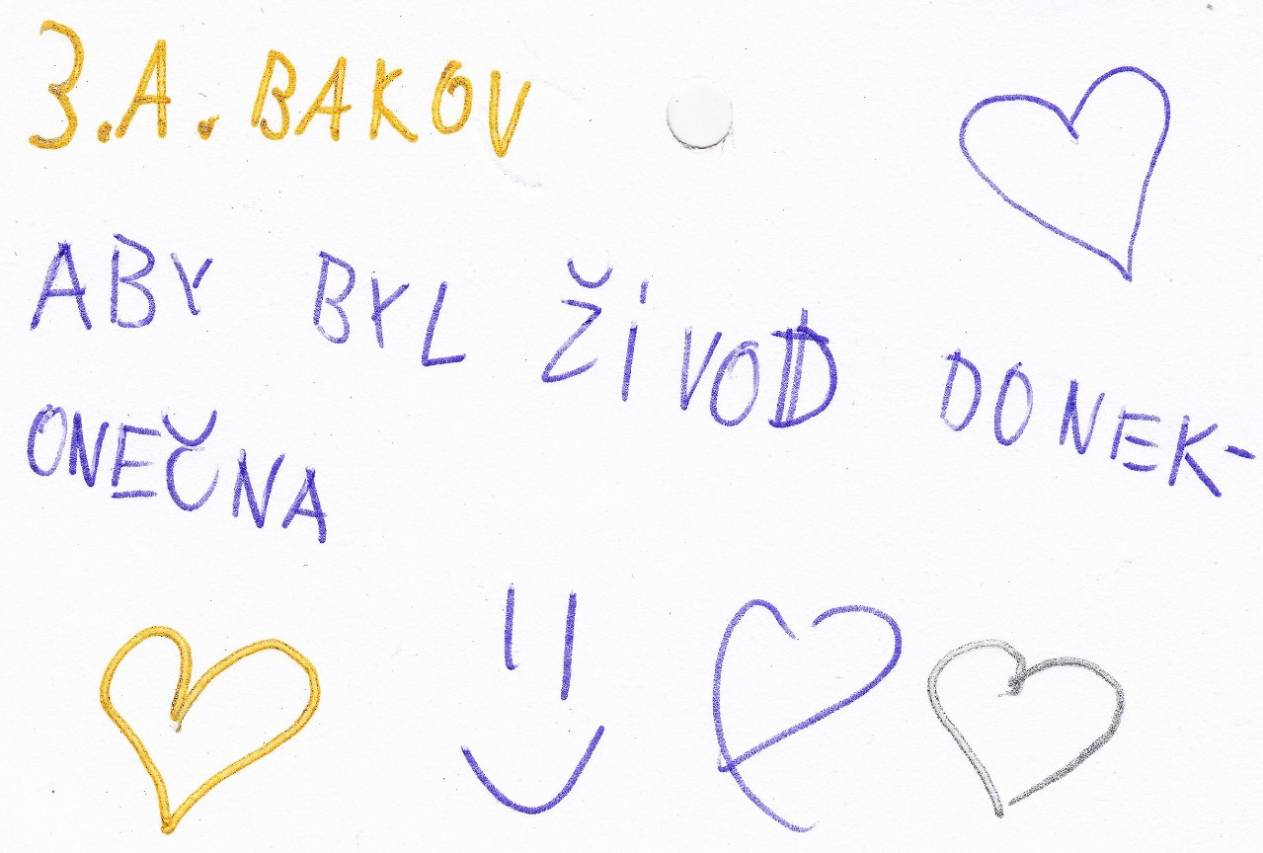 3.A. BAKOV
ABY BYL ŽIVOD DONEK-
ONEČNA